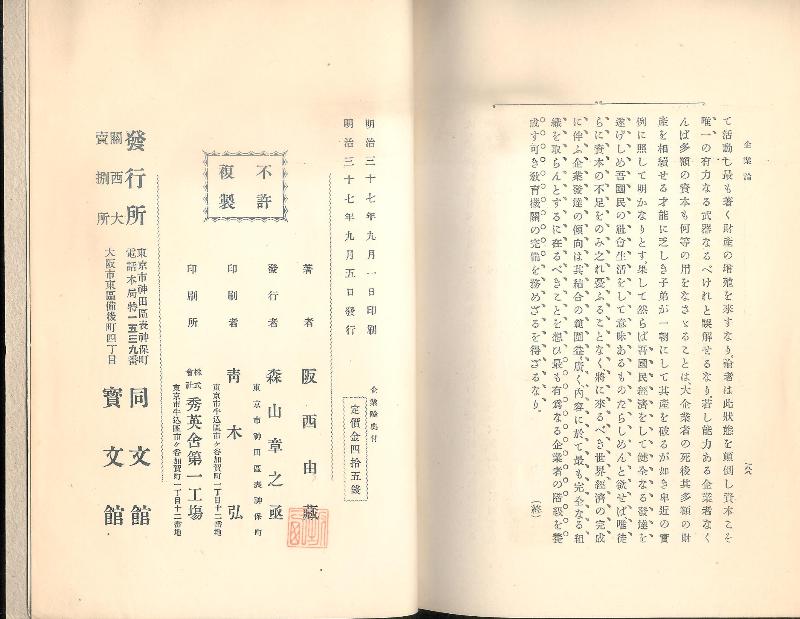 企業論
て活動し最も著く財產の增殖を來すなり、論者は此狀態を顚倒し資本こそ
唯一の有力なる武器なるべけれと誤解せるなり、若し能力ある企業者なく
んば多額の資本も何等の用をなさゞることは、大企業者の死後其多額の財
產を相續せる才能に乏しき子弟が一朝にして其產を破るが如き卑近の實
例に照して明かなりとす、果して然らば吾國民經濟をして健全なる發達を
遂げしめ吾國民の社會生活をして意味あるものたらしめんと欲せば唯徒
らに資本の不足をのみ之れ憂ふることなく將に來るべき世界經濟の完成
に伴ふ企業發達の傾向は其結合の範圍益、廣く內容に於て最も完全なる組
織を取らんとするに在るべきことを想ひ、最も有爲なる企業者の階級を養
成す可き敎育機關の完備を務めざるを得ざるなり
(終)
企業論奧付
定價金四拾五錢
明治三十七年九月一日印刷
明治三十七年九月五日發行
不許
複製
著者 阪西由藏
發行者 森山章之丞
東京市神田區表神保町
印刷者 靑木弘
東京市牛込區市ケ谷加賀町一丁目十二番地
印刷所 株式會社 秀英舍第一工場
東京市牛込區市ケ谷加賀町一丁目十二番地
發行所
東京市神田區表神保町
電話本局特一五三九番
同文館
關西大賣捌所
大阪市東區備後町四丁目
寶文館